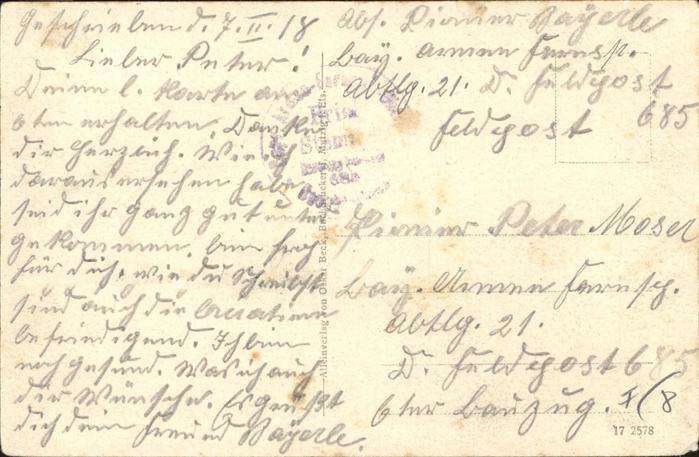 Geschrieben d. 7. II. 18
Lieber Peter!
Deine l. Karte am
6ten erhalten. Danke
dir herzlich. Wie ich
daraus ersehen habe
seid ihr ganz gut unter
gekommen, bin froh
für dich, wie du schreibst
sind auch die
befriedigend. Ich bin
noch gesund. Was ich auch
dir Wünsche. Es grüßt
dich dein Freund Bayerle.
Abs. Pionier Bayerle
Bay. Armee Fernsp.
Abtlg. 21. D. Feldpost
Feldpost 685
Pionier Peter Moser
Bay. Armee Fernsp.
Abtlg. 21.
D. Feldpost 685
6ter Bauzug. I/8
Alleinverlag von Oskar Beck, Buchdruckerei,
17 2578